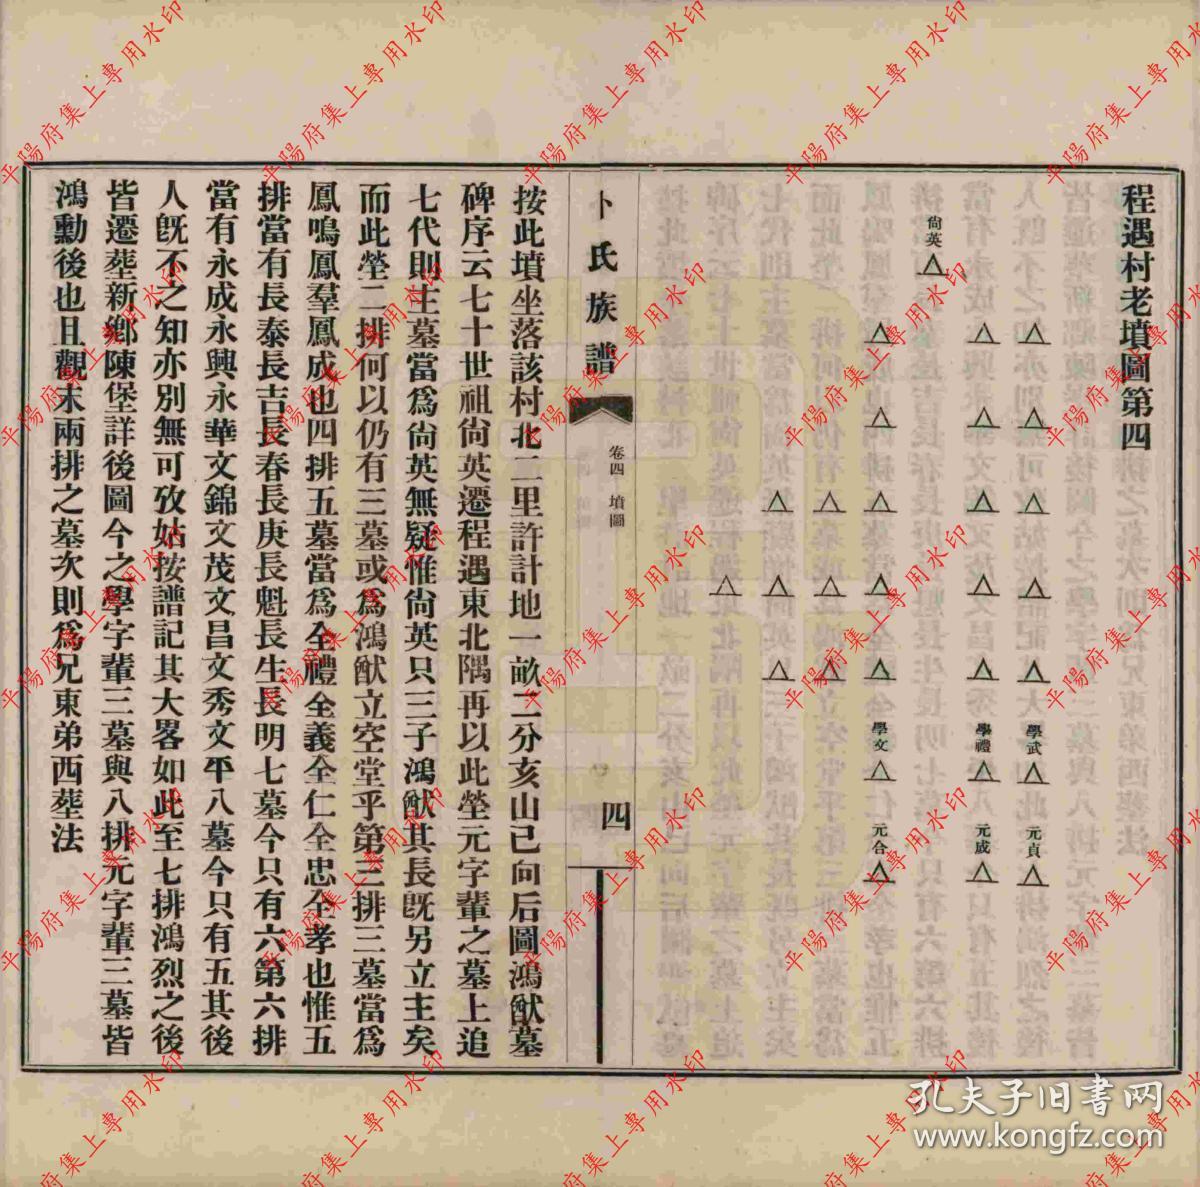 程遇村老墳圖第四
學武
元貞
學禮
元成
尙英
學文
元合
卜氏族譜
卷四 墳圖
四
按此墳坐落該村北二里許計地一畝二分亥山巳向后圖鴻猷墓
碑序云七十世祖尙英遷程遇東北隅再以此塋元字輩之墓上追
七代則主墓當爲尙英無疑惟尙英只三子鴻猷其長旣另立主矣
而此塋二排何以仍有三墓或爲鴻猷立空堂乎第三排三墓當爲
鳳鳴鳳羣鳳成也四排五墓當爲全禮全義全仁全忠全孝也惟五
排當有長泰長吉長春長庚長魁長生長明七墓今只有六第六排
當有永成永興永華文錦文茂文昌文秀文平八墓今只有五其後
人旣不之知亦別無可攷姑按譜記其大畧如此至七排鴻烈之後
皆遷塟新鄉陳堡詳後圖今之學字輩三墓與八排元字輩三墓皆
鴻勳後也且觀末兩排之墓次則爲兄東弟西塟法
平陽府集上專用水印
孔夫子旧书网
www.kongfz.com